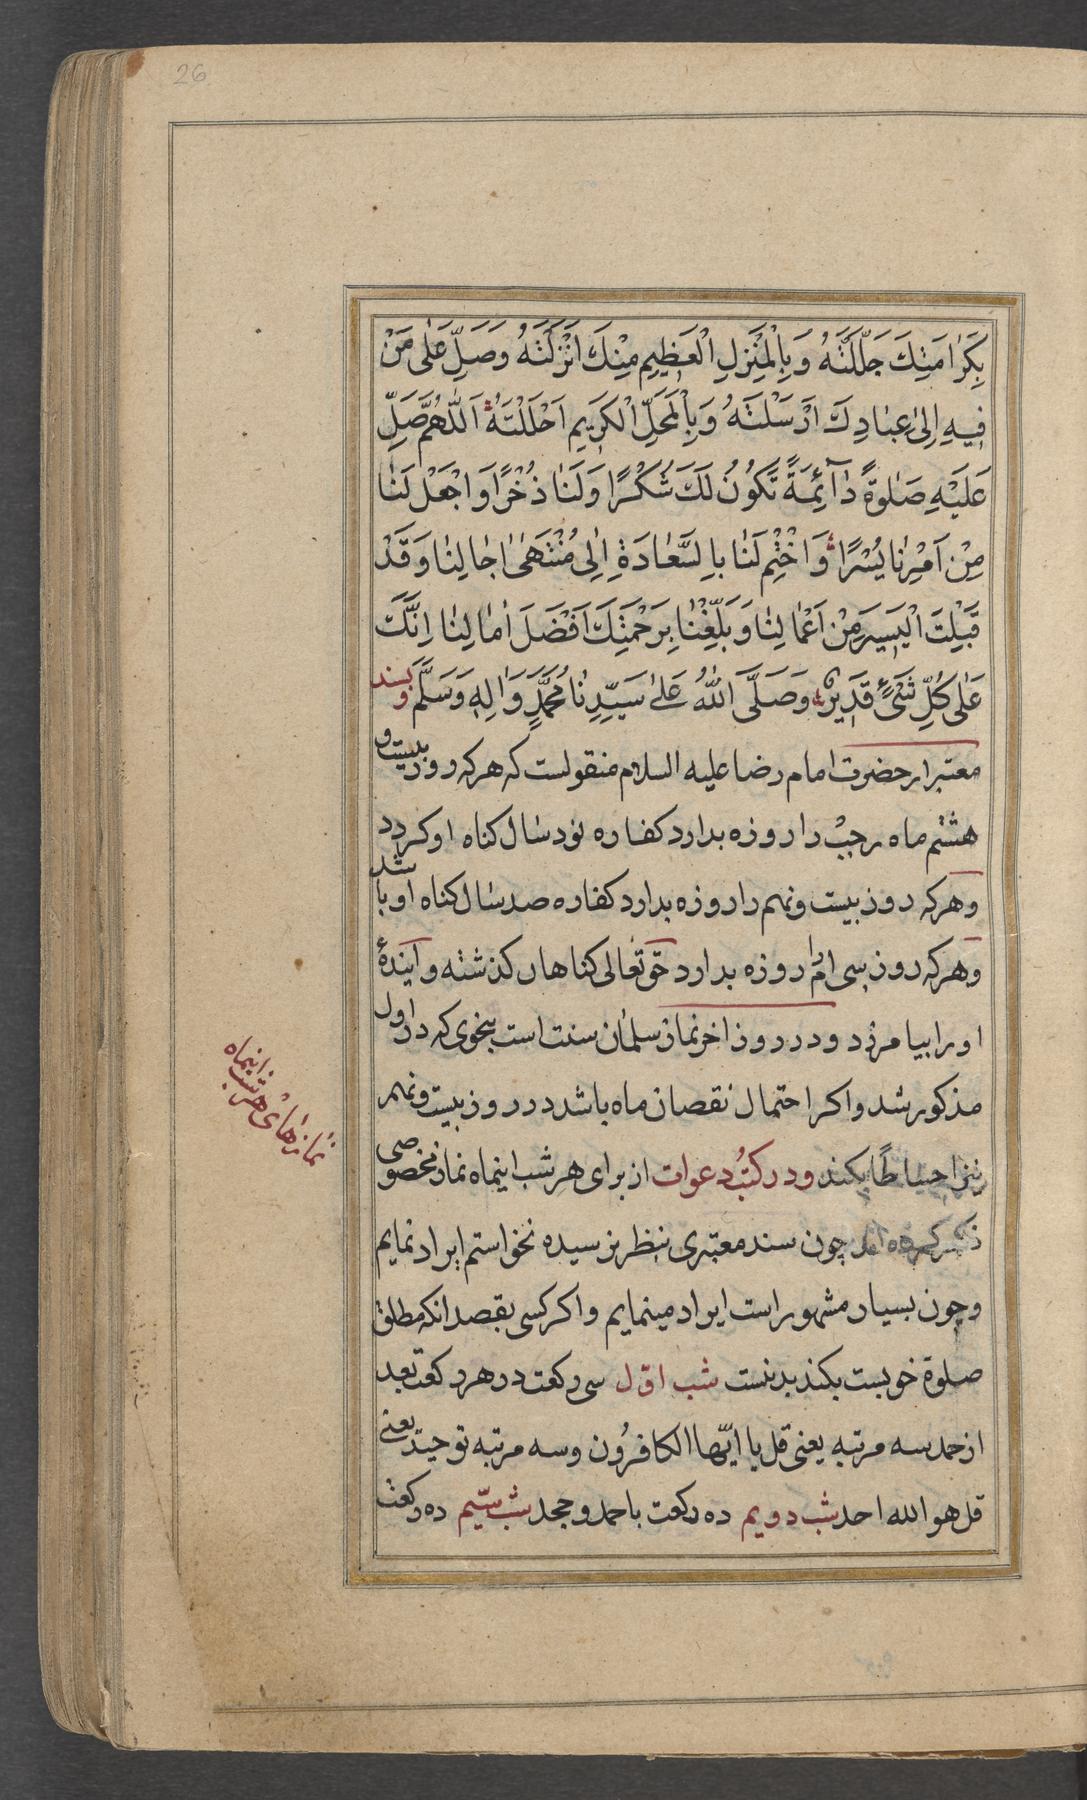 26
بِكَرٰامَتِكَ جَلَّلْتَهُ وَبِالْمَنْزِلِ الْعَظيمِ مِنْكَ اَنْزَلْتَهُ وَصَلِّ عَلٰى مَنْ
فيهِ اِلىٰ عِبٰادِكَ اَرْسَلْتَهُ وَبِالْمَحَلِّ الْكَريمِ اَحْلَلْتَهُ اَللّٰهُمَّ صَلِّ
عَلَيْهِ صَلٰوةً دٰآئِمَةً تَكُونُ لَكَ شُكْرًا وَلَنٰا ذُخْرًا وَاجْعَلْ لَنٰا
مِنْ اَمْرِنٰا يُسْرًا وَاخْتِمْ لَنٰا بِالسَّعٰادَةِ اِلىٰ مُنْتَهىٰ اٰجٰالِنٰا وَقَدْ
قَبِلْتَ الْيَسيرَ مِنْ اَعْمٰالِنٰا وَبَلِّغْنٰا بِرَحْمَتِكَ اَفْضَلَ اٰمٰالِنٰا اِنَّكَ
عَلٰى كُلِّ شَىْءٍ قَديرٌ وَصَلَّى اللّٰهُ عَلىٰ سَيِّدِنٰا مُحَمَّدٍ وَاٰلِهِ وَسَلَّمَ وبسند
معتبر از حضرت امام رضا علیه السلام منقولست که هر که روز بیست و
هشتم ماه رجب را روزه بدارد کفاره نود سال کناه او کردد
وهر که روز بیست ونهم را روزه بدارد کفاره صد سال کناه او باشد
وهر که روز سی ام را روزه بدارد حق تعالی کناهان کذشته و آیندۀ
او را بیامرزد و در روز اخر نماز سلمان سنت است بنحوی که در اول
مذکور شد واکر احتمال نقصان ماه باشد در روز بیست ونهم
نیز احتیاطًا بکند ودر کتب دعوات از برای هر شب اینماه نماز مخصوصی
ذکر کرده اند چون سند معتبری بنظر نرسیده نخواستم ایراد نمایم
وچون بسیار مشهور است ایراد مینمایم واکر کسی بقصد انکه مطلق
صلوة خوبست بکند بد نیست شب اوّل سی رکعت در هر رکعت بعد
از حمد سه مرتبه یعنی قل یا ایّها الکافرُون وسه مرتبه توحید یعنی
قل هو الله احد شب دویم ده رکعت باحمد و جحد شب سیّم ده رکعت
نمازهای هر شب
اینماه